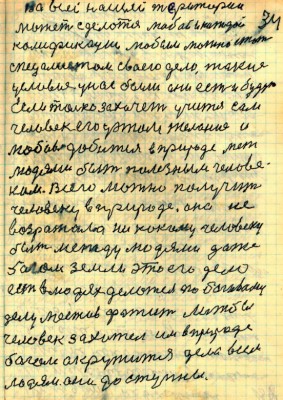 на всей нашей территории
может сделотся любая каждой
34
можно стат
спецалистом своего дело, такие
условия у нас были они ест и буду
Если толко захочет учится сам
человек его удтом желание и
добится в природе меж
людями быт полезным челове-
ком. Всего можно получит
человеку в природе. она не
возражала ни какому человеку
быт между людями даже
богом земли это его дело
ест в людях делотся по боговому
делу места хватит лиж бы
человек захотел им в природе
богом окружится дела всем
людям. они доступны.